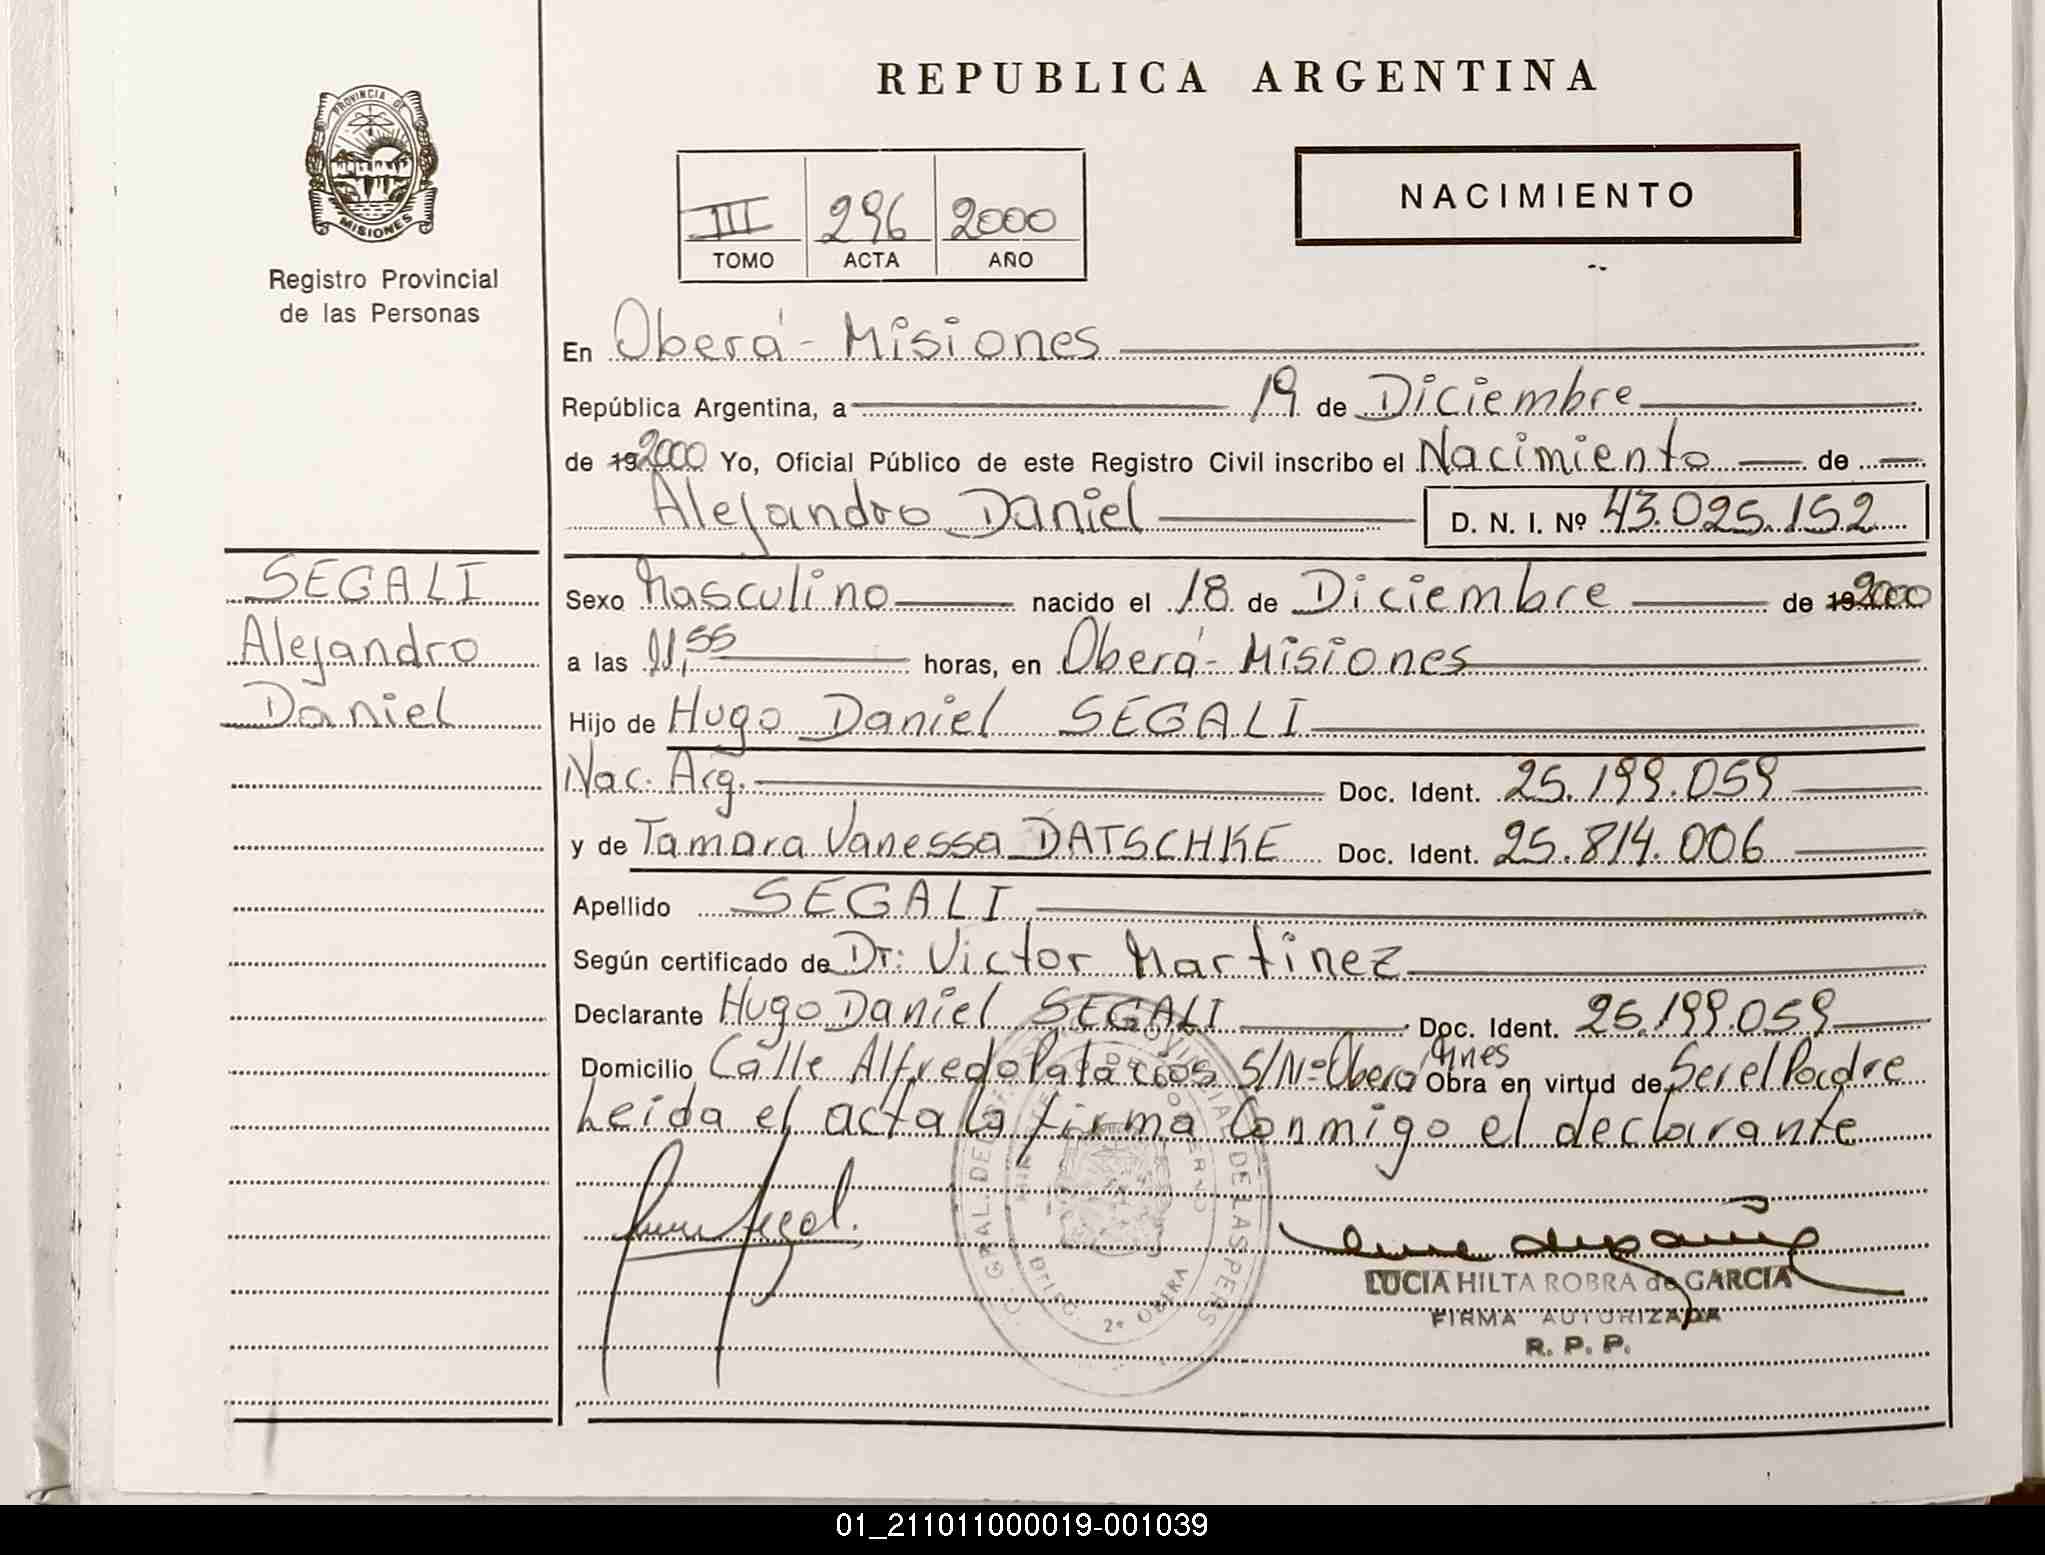 REPUBLICA ARGENTINA
PROVINCIA DE
MISIONES
Registro Provincial
de las Personas
III 296 2000
TOMO ACTA AÑO
NACIMIENTO
En Oberá - Misiones
República Argentina, a 19 de Diciembre
de 19 2000 Yo, Oficial Público de este Registro Civil inscribo el Nacimiento de
Alejandro Daniel D. N. I. Nº 43.025.152
SEGALI
Alejandro
Daniel
Sexo Masculino nacido el 18 de Diciembre de 19 2000
a las 11,55 horas, en Oberá - Misiones
Hijo de Hugo Daniel SEGALI
Nac. Arg. Doc. Ident. 25.199.059
y de Tamara Vanessa DATSCHKE Doc. Ident. 25.814.006
Apellido SEGALI
Según certificado de Dr: Victor Martinez
Declarante Hugo Daniel SEGALI Doc. Ident. 25.199.059
Domicilio Calle Alfredo Palacios S/Nº Oberá Mnes Obra en virtud de Ser el Padre
Leida el acta la firma Conmigo el declarante
LUCIA HILTA ROBRA de GARCIA
FIRMA AUTORIZADA
R. P. P.
01_211011000019-001039